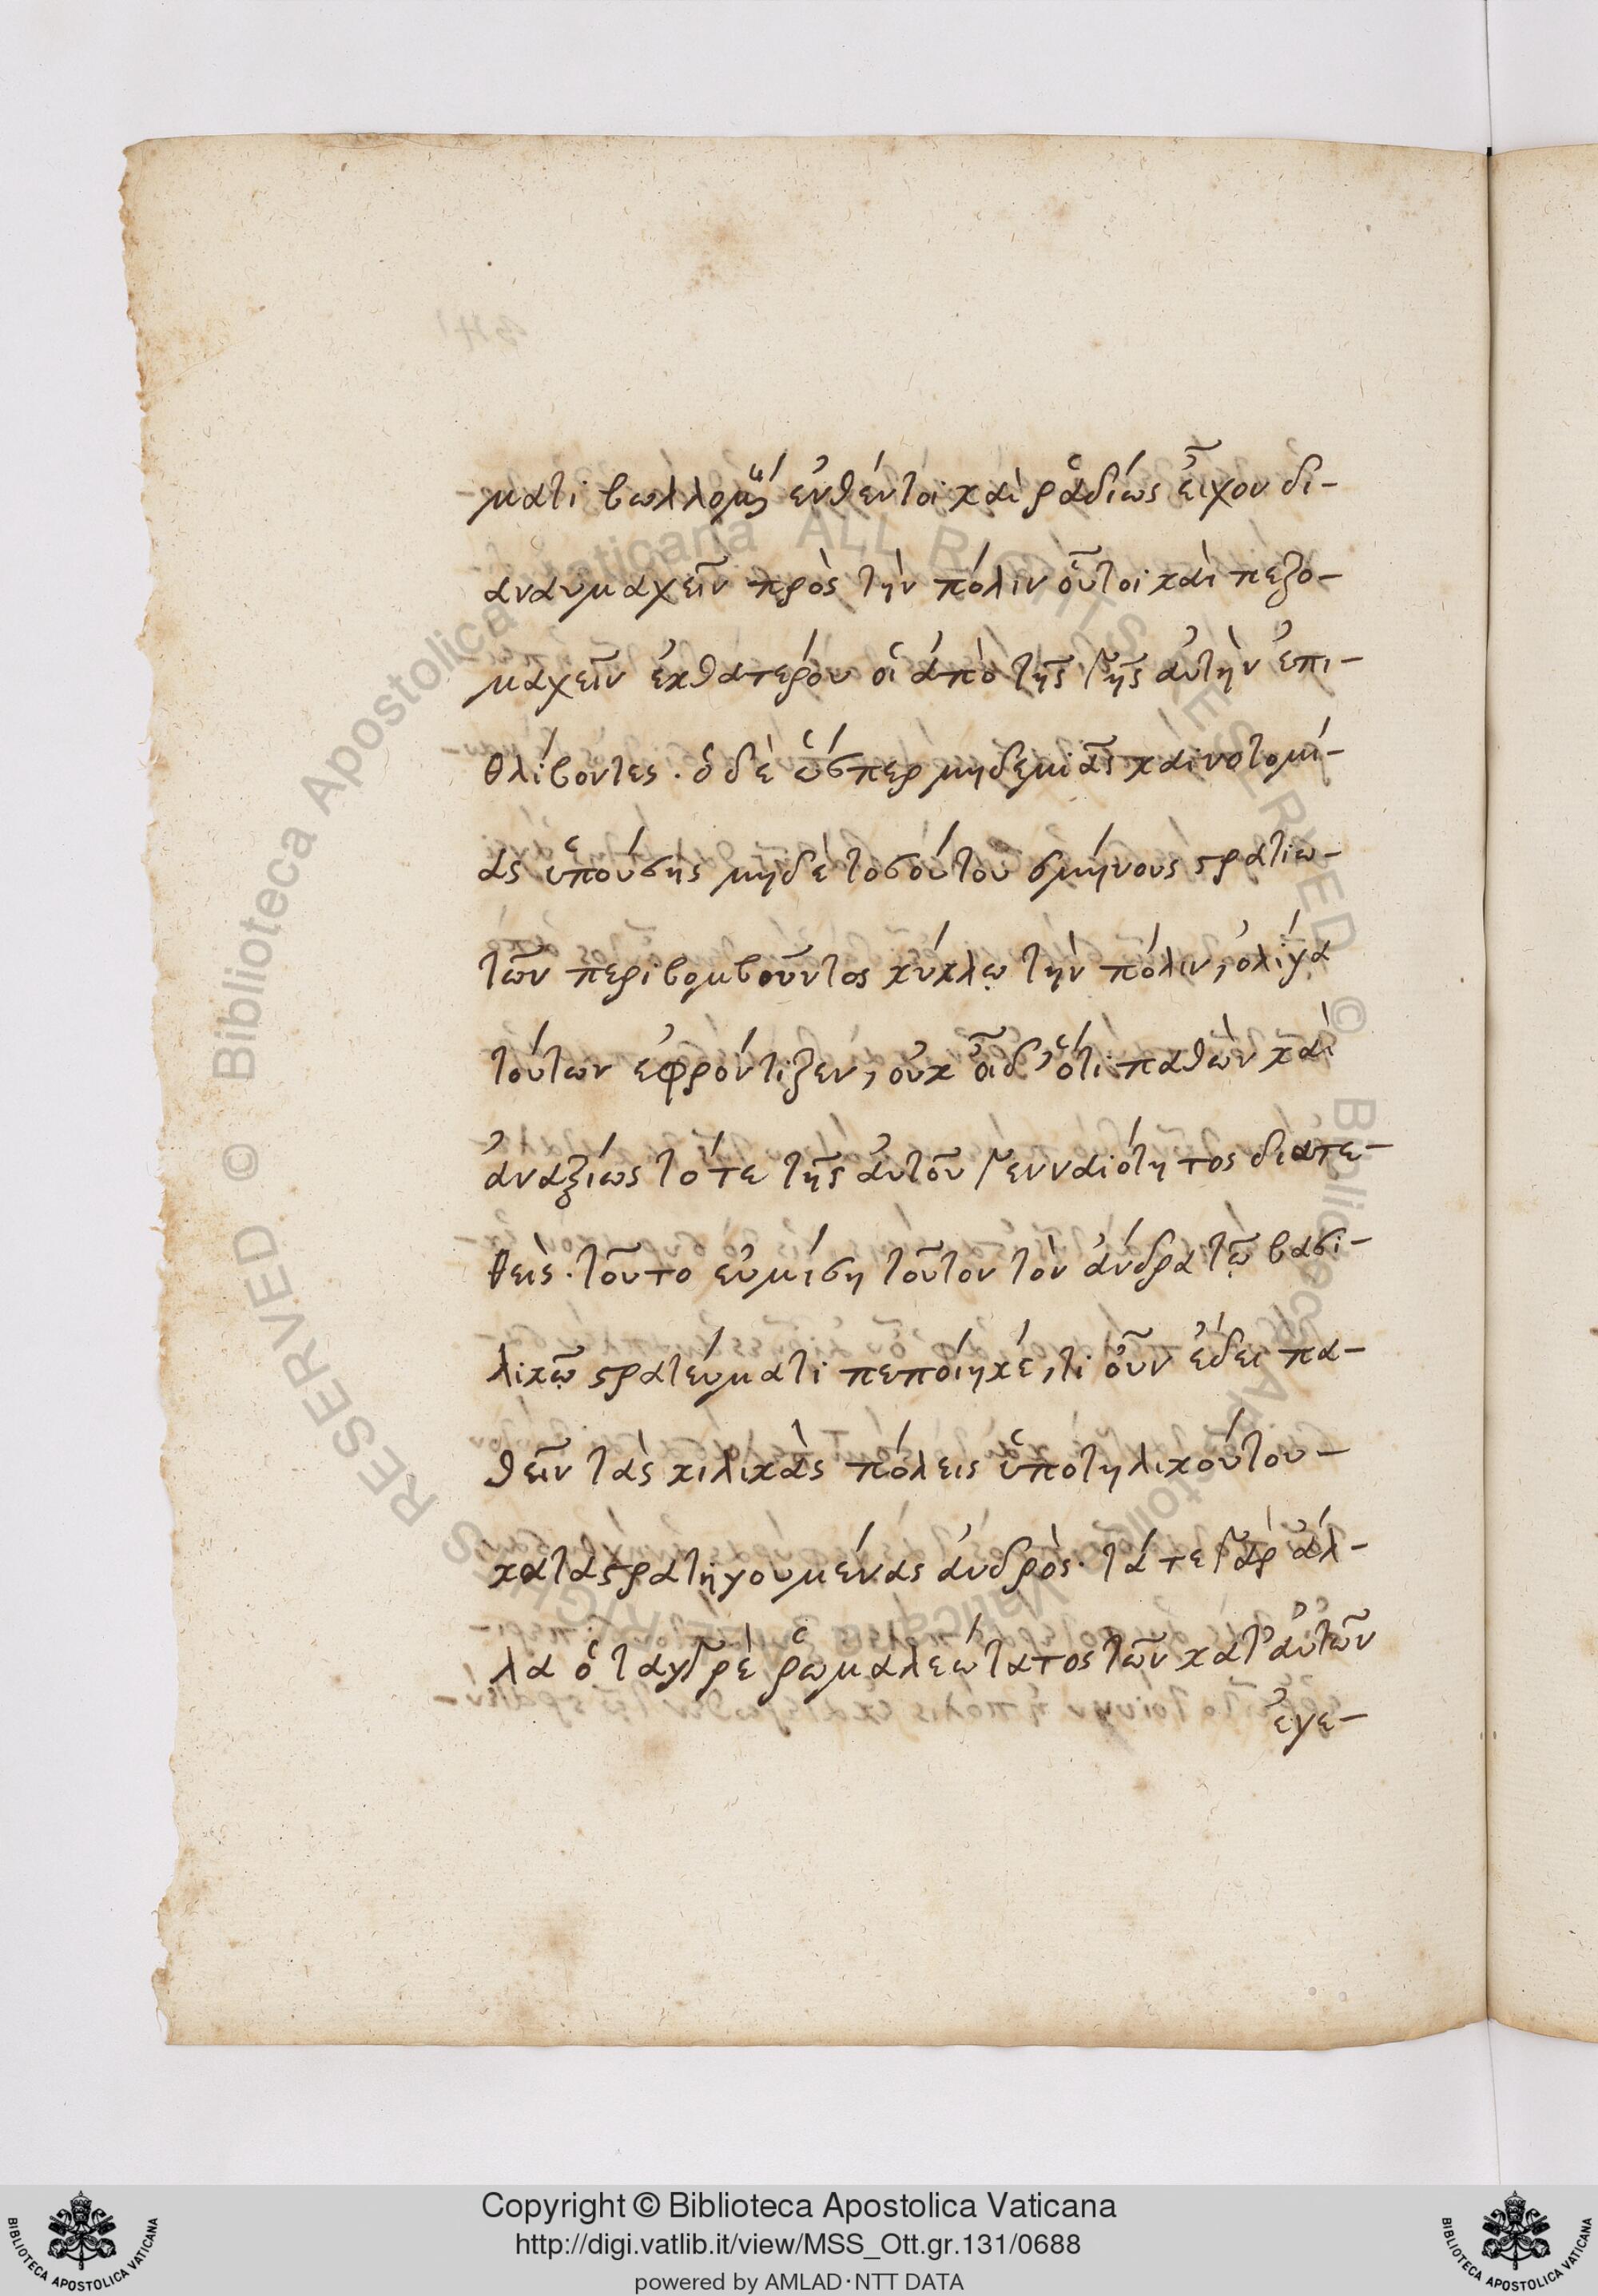 ματι βωλλομένῳ ἐνθέντοι καὶ ῥαδίως εἶχον δι-
αναυμαχεῖν πρὸς τὴν πόλιν οὗτοι καὶ πεζο-
μαχεῖν ἐκθατέρου οἱ ἀπὸ τῆς γῆς αὐτὴν ἐπι-
θλίβοντες. ὁ δὲ ὥσπερ μηδεμιᾶς καινοτομί-
ας ὑπούσης μηδὲ τοσούτου σμήνους στρατιω-
τῶν περιβομβοῦντος κύκλῳ τὴν πόλιν, ὀλίγα
τούτων ἐφρόντιζεν, οὐκ οἶδ' ὅτι παθὼν καὶ
ἀναξίως τότε τῆς αὐτοῦ γενναιότητος διατε-
θεὶς. τοῦτο εὐμίση τοῦτον τὸν ἄνδρα τῷ βασι-
λικῷ στρατεύματι πεποίηκέ, τί οὖν ἔδει πα-
θεῖν τὰς κιλικὰς πόλεις ὑποτηλικούτου-
καταστρατηγουμένας ἀνδρὸς. τά τε γὰρ ἄλ-
λα ὁ ταγγρὲ ῥωμαλεώτατος τῶν κατ' αὐτῶν
ἐγε-
Copyright © Biblioteca Apostolica Vaticana
http://digi.vatlib.it/view/MSS_Ott.gr.131/0688
powered by AMLAD·NTT DATA
BIBLIOTECA APOSTOLICA VATICANA
BIBLIOTECA APOSTOLICA VATICANA